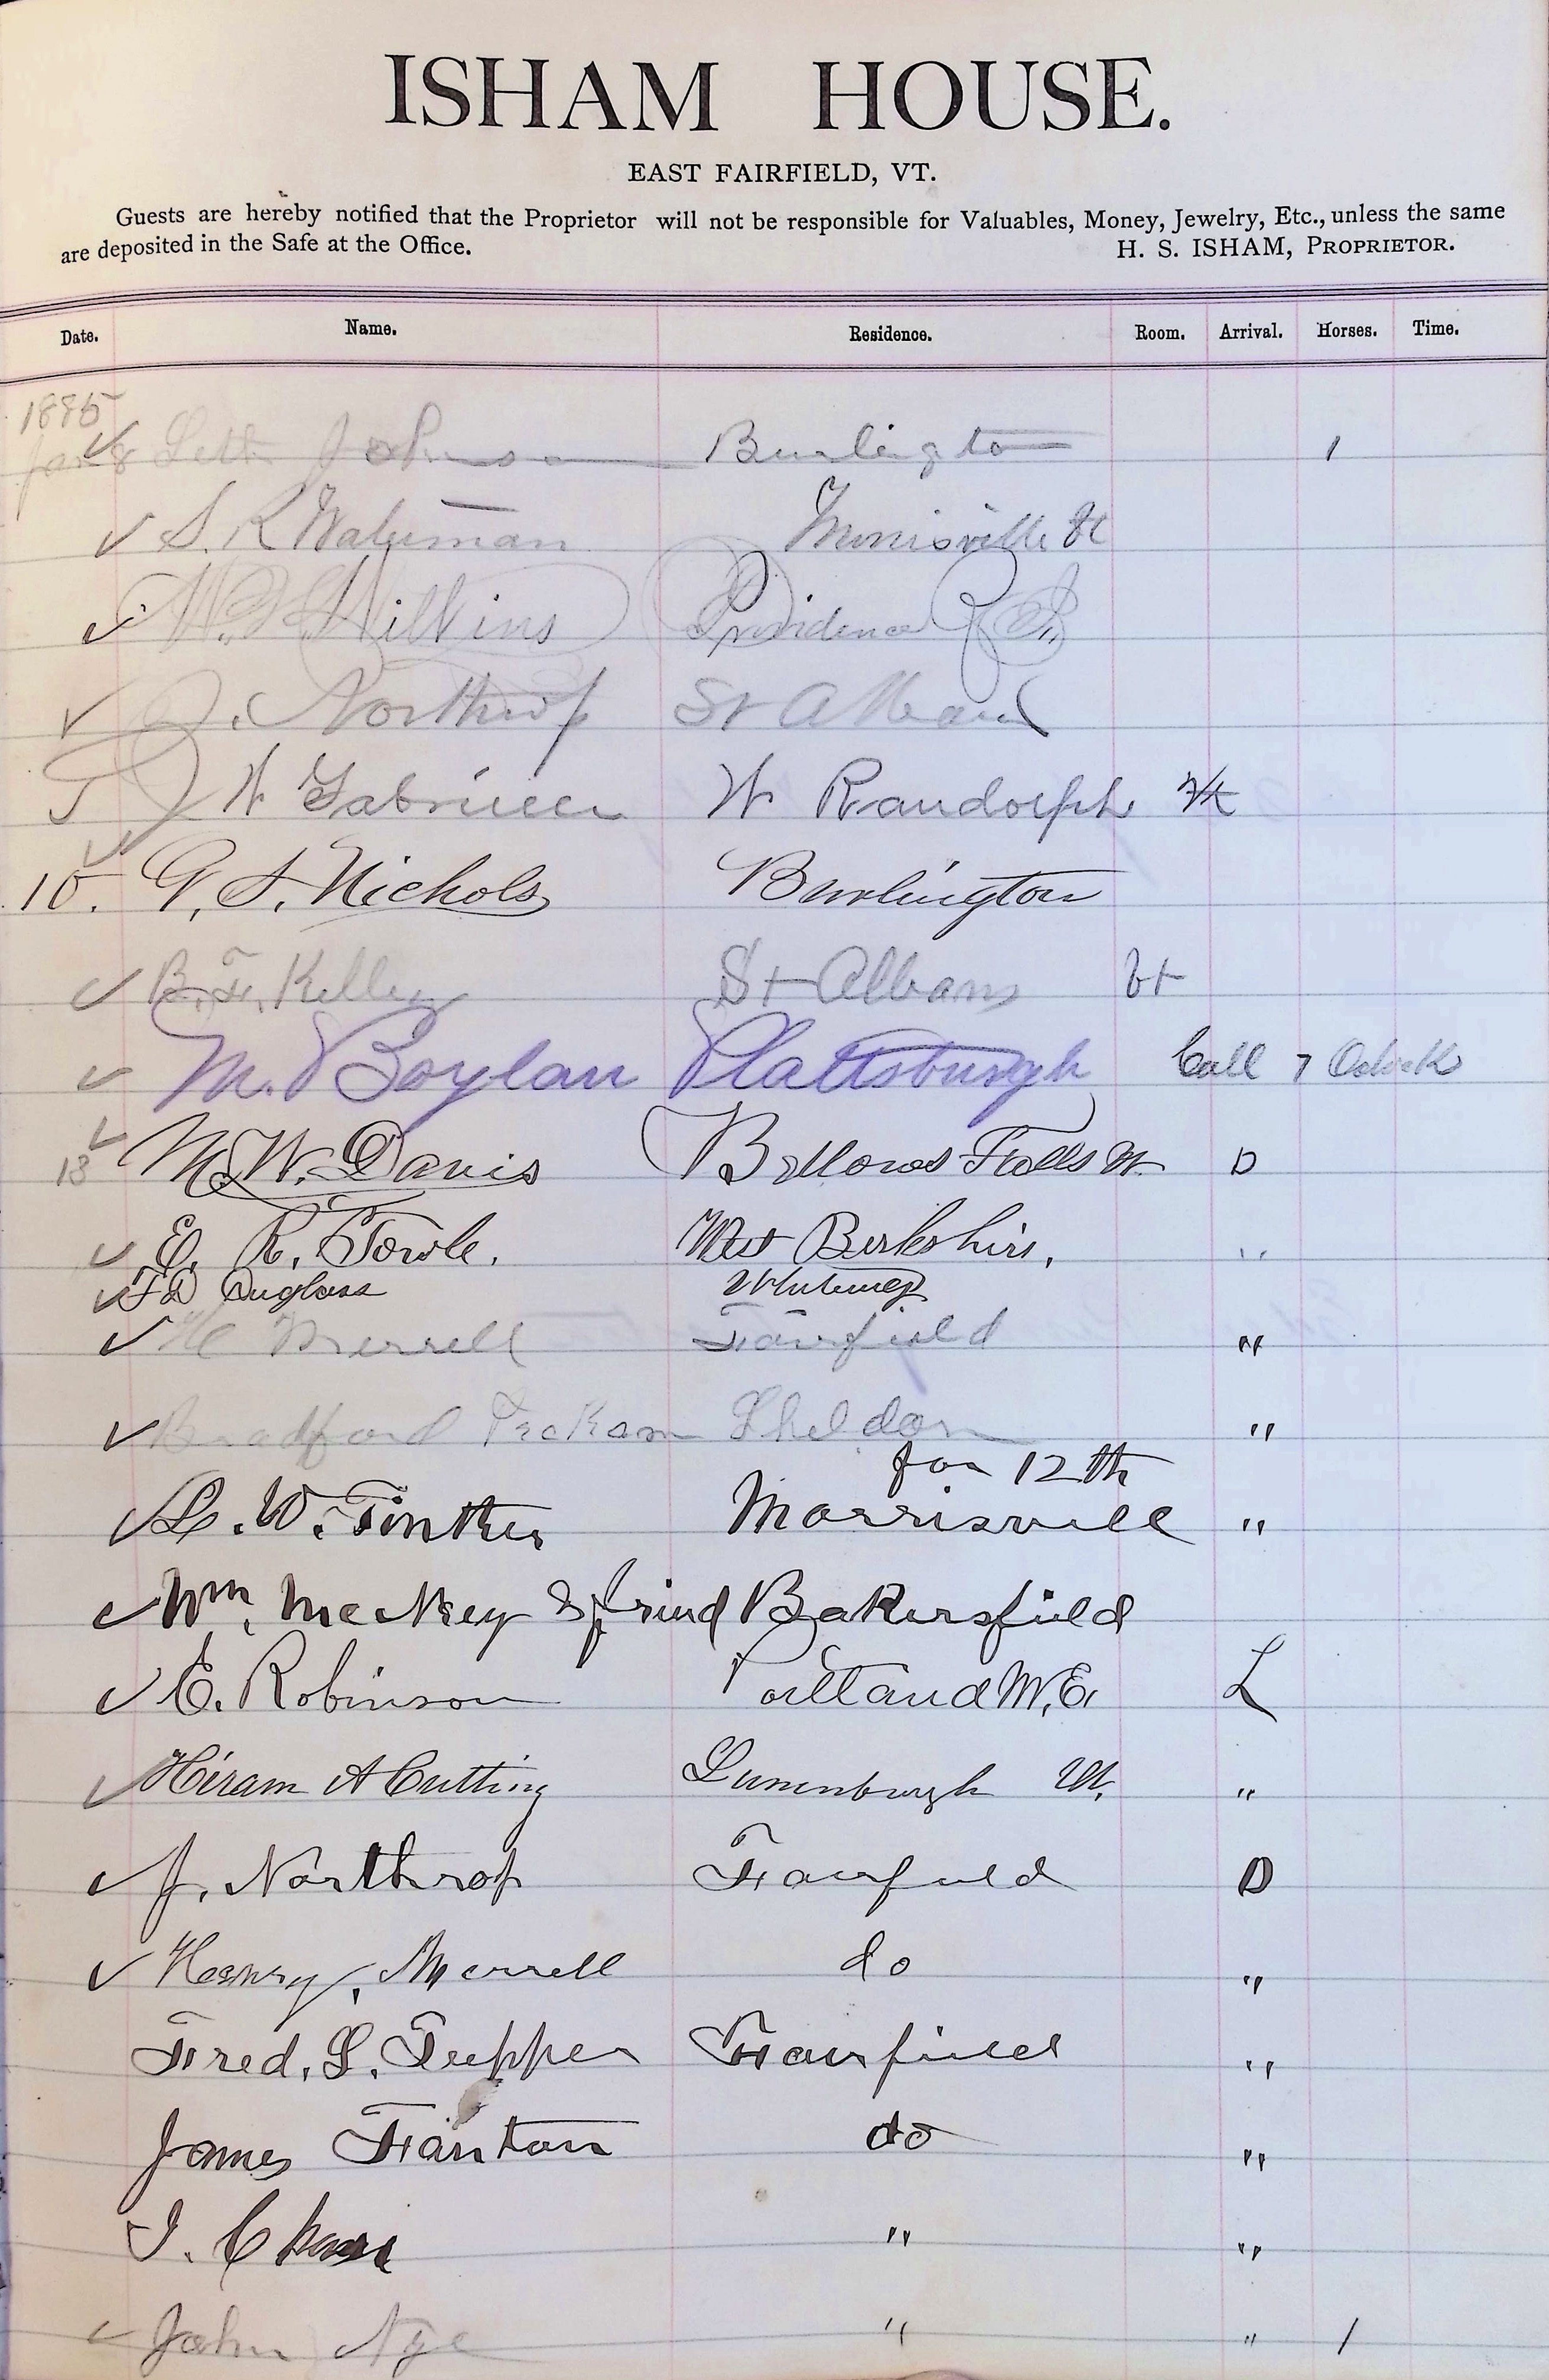 ISHAM HOUSE.
EAST FAIRFIELD, VT.
Guests are hereby notified that the Proprietor will not be responsible for Valuables, Money, Jewelry, Etc., unless the same
are deposited in the Safe at the Office. H. S. ISHAM, PROPRIETOR.
Date. Name. Residence. Room. Arrival. Horses. Time.
1885
Jan 8 Johnson Burlington 1
S. R. Morrisville Vt
Wilkins Providence R.I.
J. Northrop St Albans
W W Randolph Vt
10. G. S. Nichols Burlington
B. F. Kelley St Albans Vt
M. Boylan Plattsburgh Call 7 Oclock
13 M. W. Davis Bellows Falls Vt. D
E. R. Towle. West Berkshire, "
F D Duglass Whitney
H Merrell Fairfield "
Bradford Peckam Sheldon "
Jan 12th
L. W. Tinker Morrisvill "
Wm. McNey & frind Bakersfield
E. Robinson Portland M.E. L
Hiram A Cutting Lunenburgh Vt. "
J. Northrop Fairfield D
Henry, Merrell do "
Fred. L. Tupper Fairfield "
James Fanton do "
I. C " "
John Nye " " 1